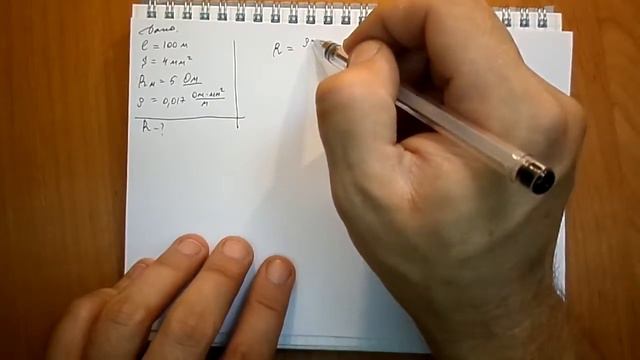 Дано:
ℓ = 100 м
S = 4 мм²
Rм = 5 Ом
ρ = 0,017 Ом·мм²/м
R - ?
R = ρ